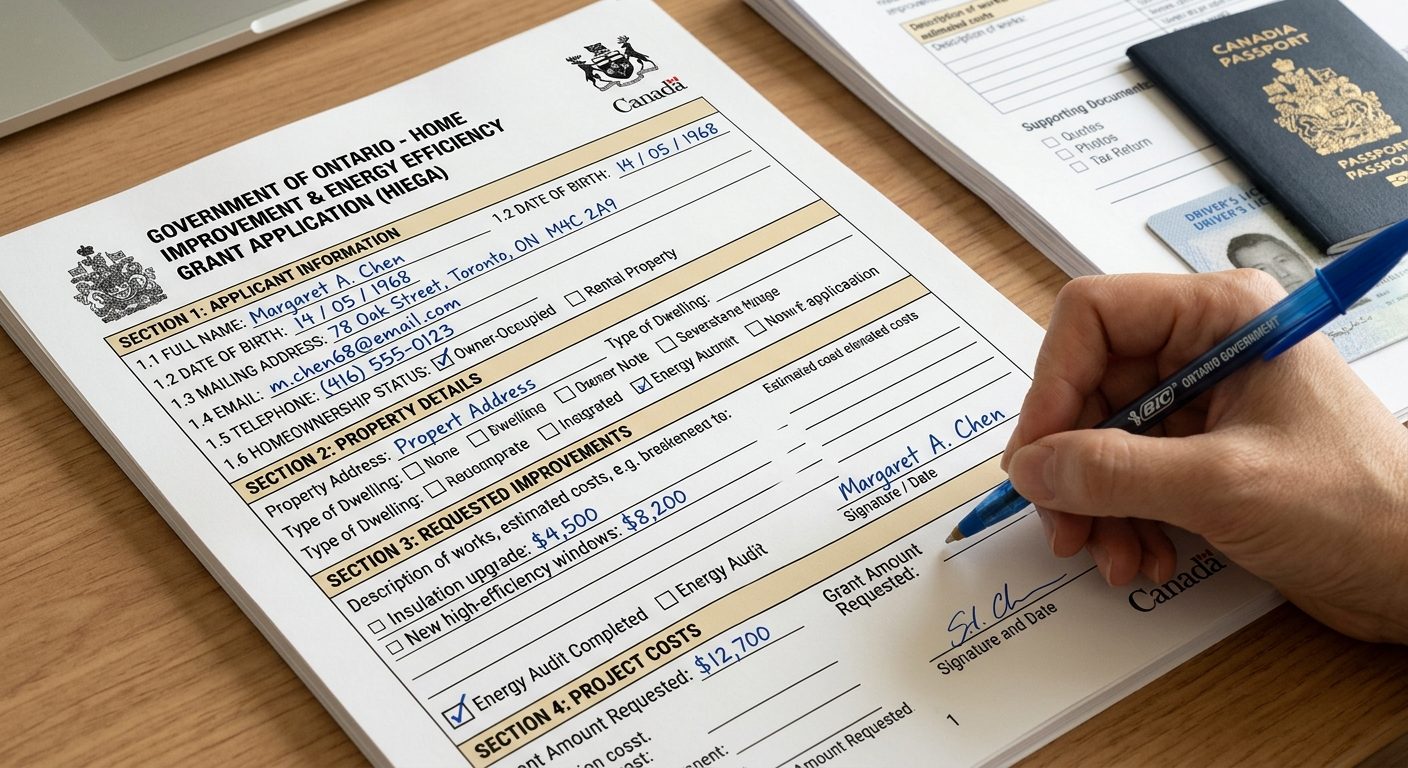 GOVERNMENT OF ONTARIO - HOME
IMPROVEMENT & ENERGY EFFICIENCY
GRANT APPLICATION (HIEGA)
Canada
SECTION 1: APPLICANT INFORMATION
1.1 FULL NAME: Margaret A. Chen
1.2 DATE OF BIRTH: 14 / 05 / 1968
1.2 DATE OF BIRTH: 14 / 05 / 1968
1.3 MAILING ADDRESS: 78 Oak Street, Toronto, ON M4C 2A9
1.4 EMAIL: m.chen68@email.com
1.5 TELEPHONE: (416) 555-0123
1.6 HOMEOWNERSHIP STATUS: Owner-Occupied Rental Property
SECTION 2: PROPERTY DETAILS
Property Address: Propert Address Type of Dwelling:
Type of Dwelling: None Dwelling Owner Note
Type of Dwelling: Energy
SECTION 3: REQUESTED IMPROVEMENTS
Description of works, estimated costs, e.g. to:
Estimated cost
Insulation upgrade: $4,500
New high-efficiency windows: $8,200
Margaret A. Chen
Signature / Date
Energy Audit Completed Energy Audit
SECTION 4: PROJECT COSTS
Grant Amount
Requested:
nt Amount Requested: $12,700
on cost.
st:
nent:
Amount Requested
S.l. Ch
Signature and Date
Canada
1
Description of
estimated costs
Description of works:
Supporting Document
Quotes
Photos
Tax Return
CANADIA
PASSPORT
PASSPO
PASSPO
DRIVER'S LIC
UNIVER'S LIC
BIC ONTARIO GOVERNMENT